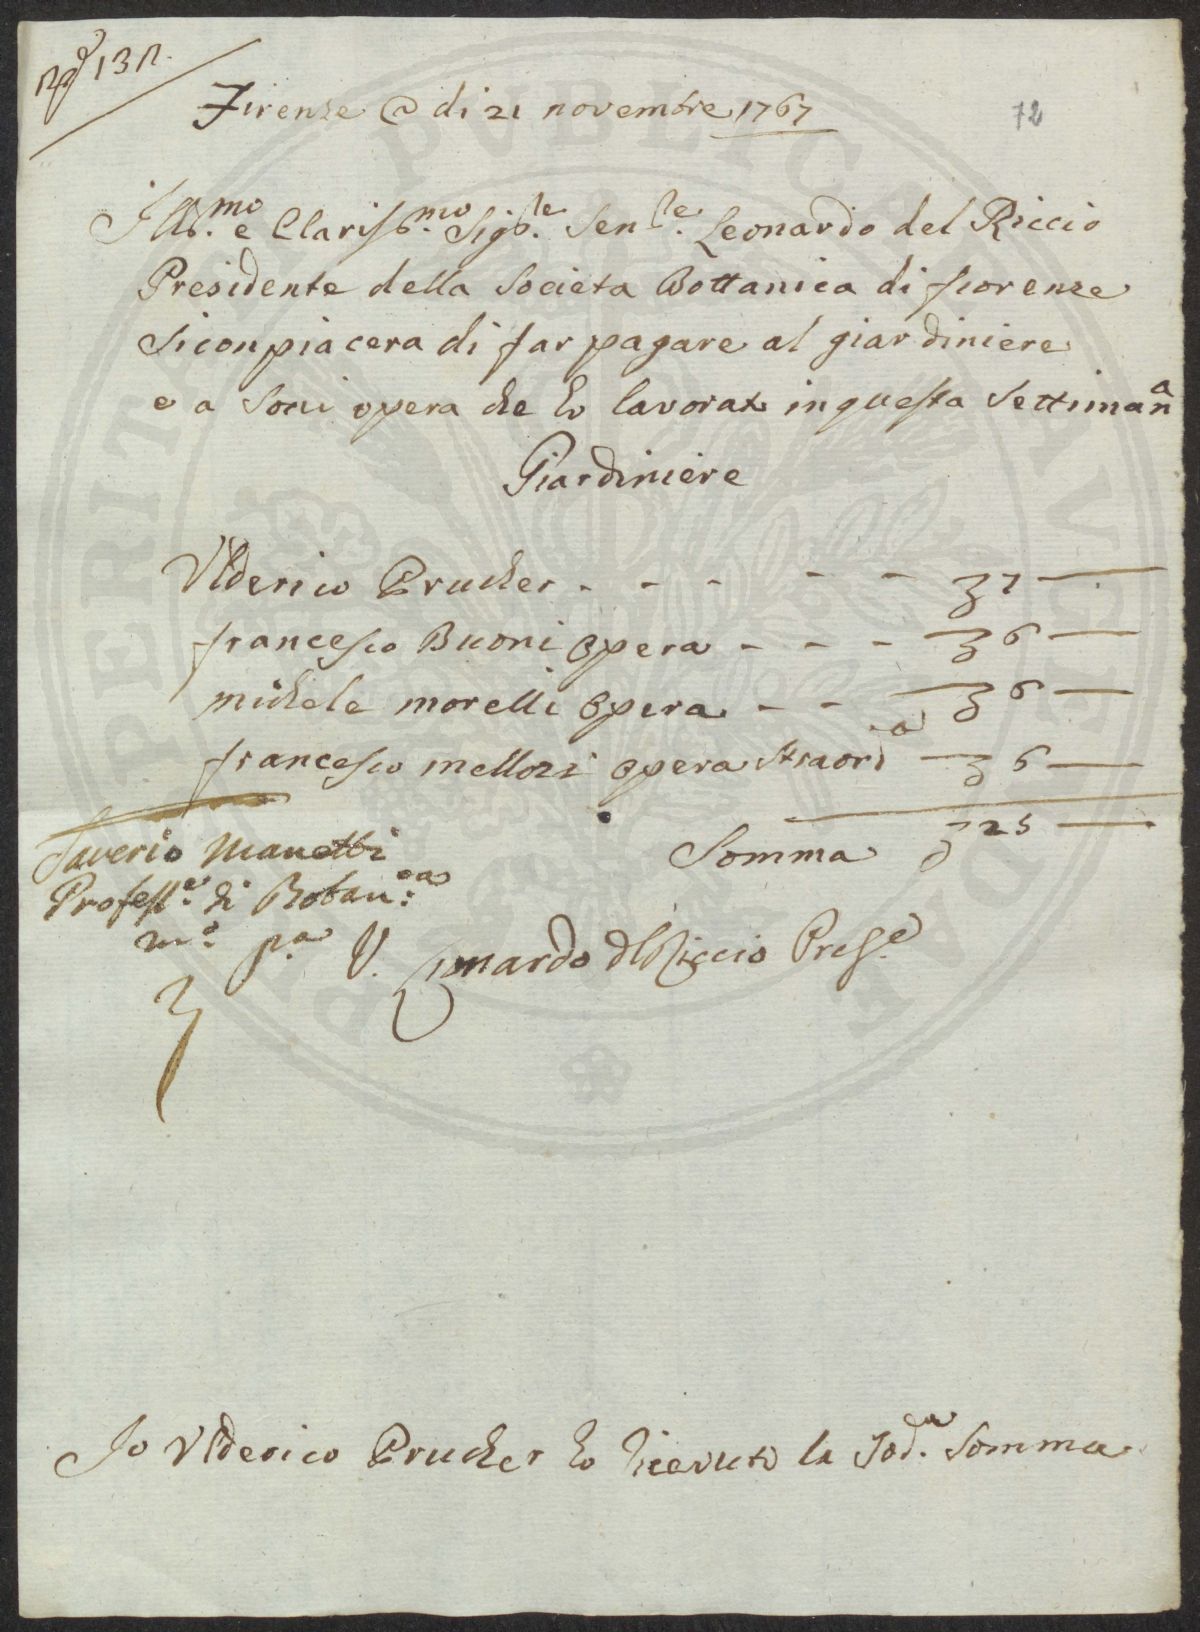 132.
Firenze @ di 21 novembre 1767
72
Ill:mo e Clariss:mo Sig:re Sen:re Leonardo del Riccio
Presidente della Societa Bottanica di fiorenze
Si conpiacera di far pagare al giardiniere
e a Soui opera che ho lavorato in questa Settimana
Giardiniere
Ulderico Prucher - - - - - 7 —
francesco Buoni opera - - - 6 —
michele morelli opera - - — 6 —
francesco mellozi opera straord:a — 6 —
Somma 25 —
Saverio Manetti
Profess:e di Botan:ca
m:o p:a
V. Lionardo del Riccio Pres:e
Io Ulderico Prucher ho riceuuto la Sod:a Somma
PVBLICAE
PERITAE